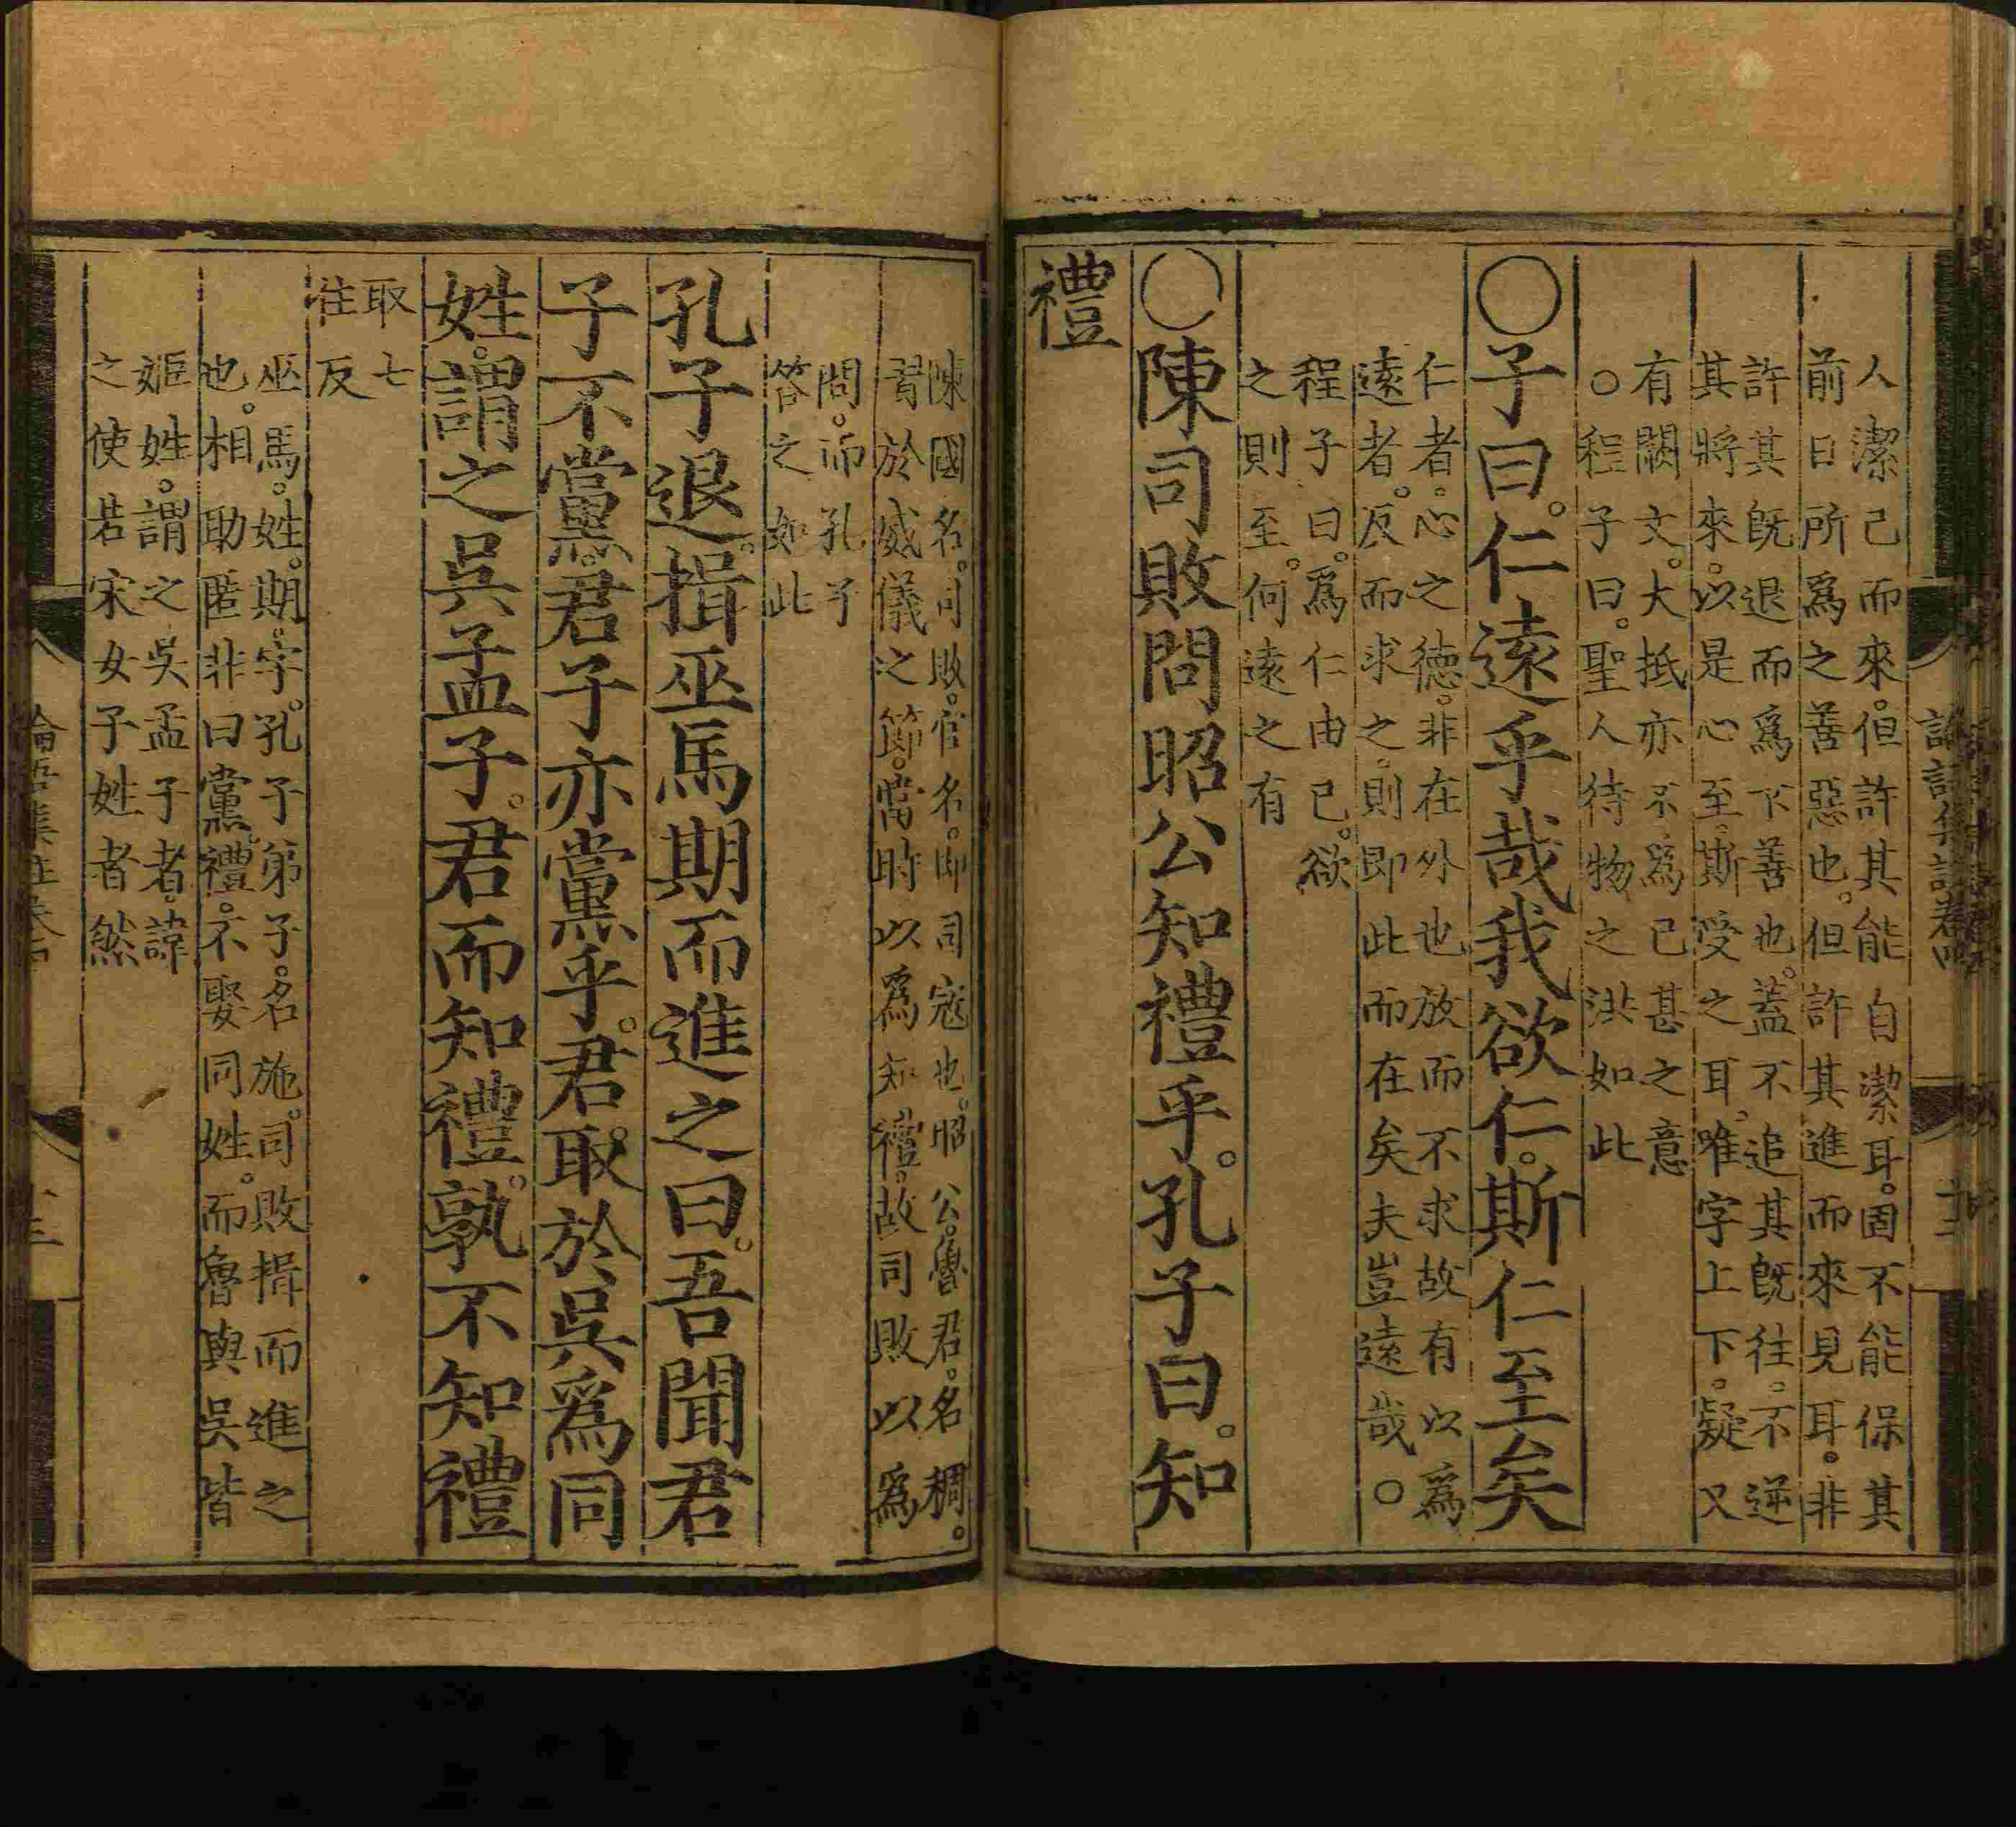 人潔己而來。但許其能自潔耳。固不能保其
前日所爲之善惡也。但許其進而來見耳。非
許其旣退而爲下善也。蓋不追其旣往。不逆
其將來。以是心至。斯受之耳。唯字上下。疑又
有闕文。大抵亦不爲已甚之意
○程子曰。聖人待物之洪如此
○子曰。仁遠乎哉我欲仁。斯仁至矣
仁者。心之德。非在外也放而不求故有以爲
遠者。反而求之。則即此而在矣夫豈遠哉。○
程子曰。爲仁由己。欲
之則至。何遠之有
○陳司敗問昭公知禮乎。孔子曰。知
禮
陳國名。司敗。官名。即司寇也。昭公。魯君。名稠。
習於威儀之節。當時以爲知禮。故司敗以爲
問。而孔子
答之如此
孔子退。揖巫馬期而進之曰。吾聞君
子不黨。君子亦黨乎。君取於吳爲同
姓。謂之吳孟子。君而知禮。孰不知禮
取七
住反
巫馬。姓。期。字。孔子弟子。名施。司敗揖而進之
也。相助匿非曰黨。禮。不娶同姓。而魯與吳皆
姬姓。謂之吳孟子者。諱
之使若宋女子姓者然